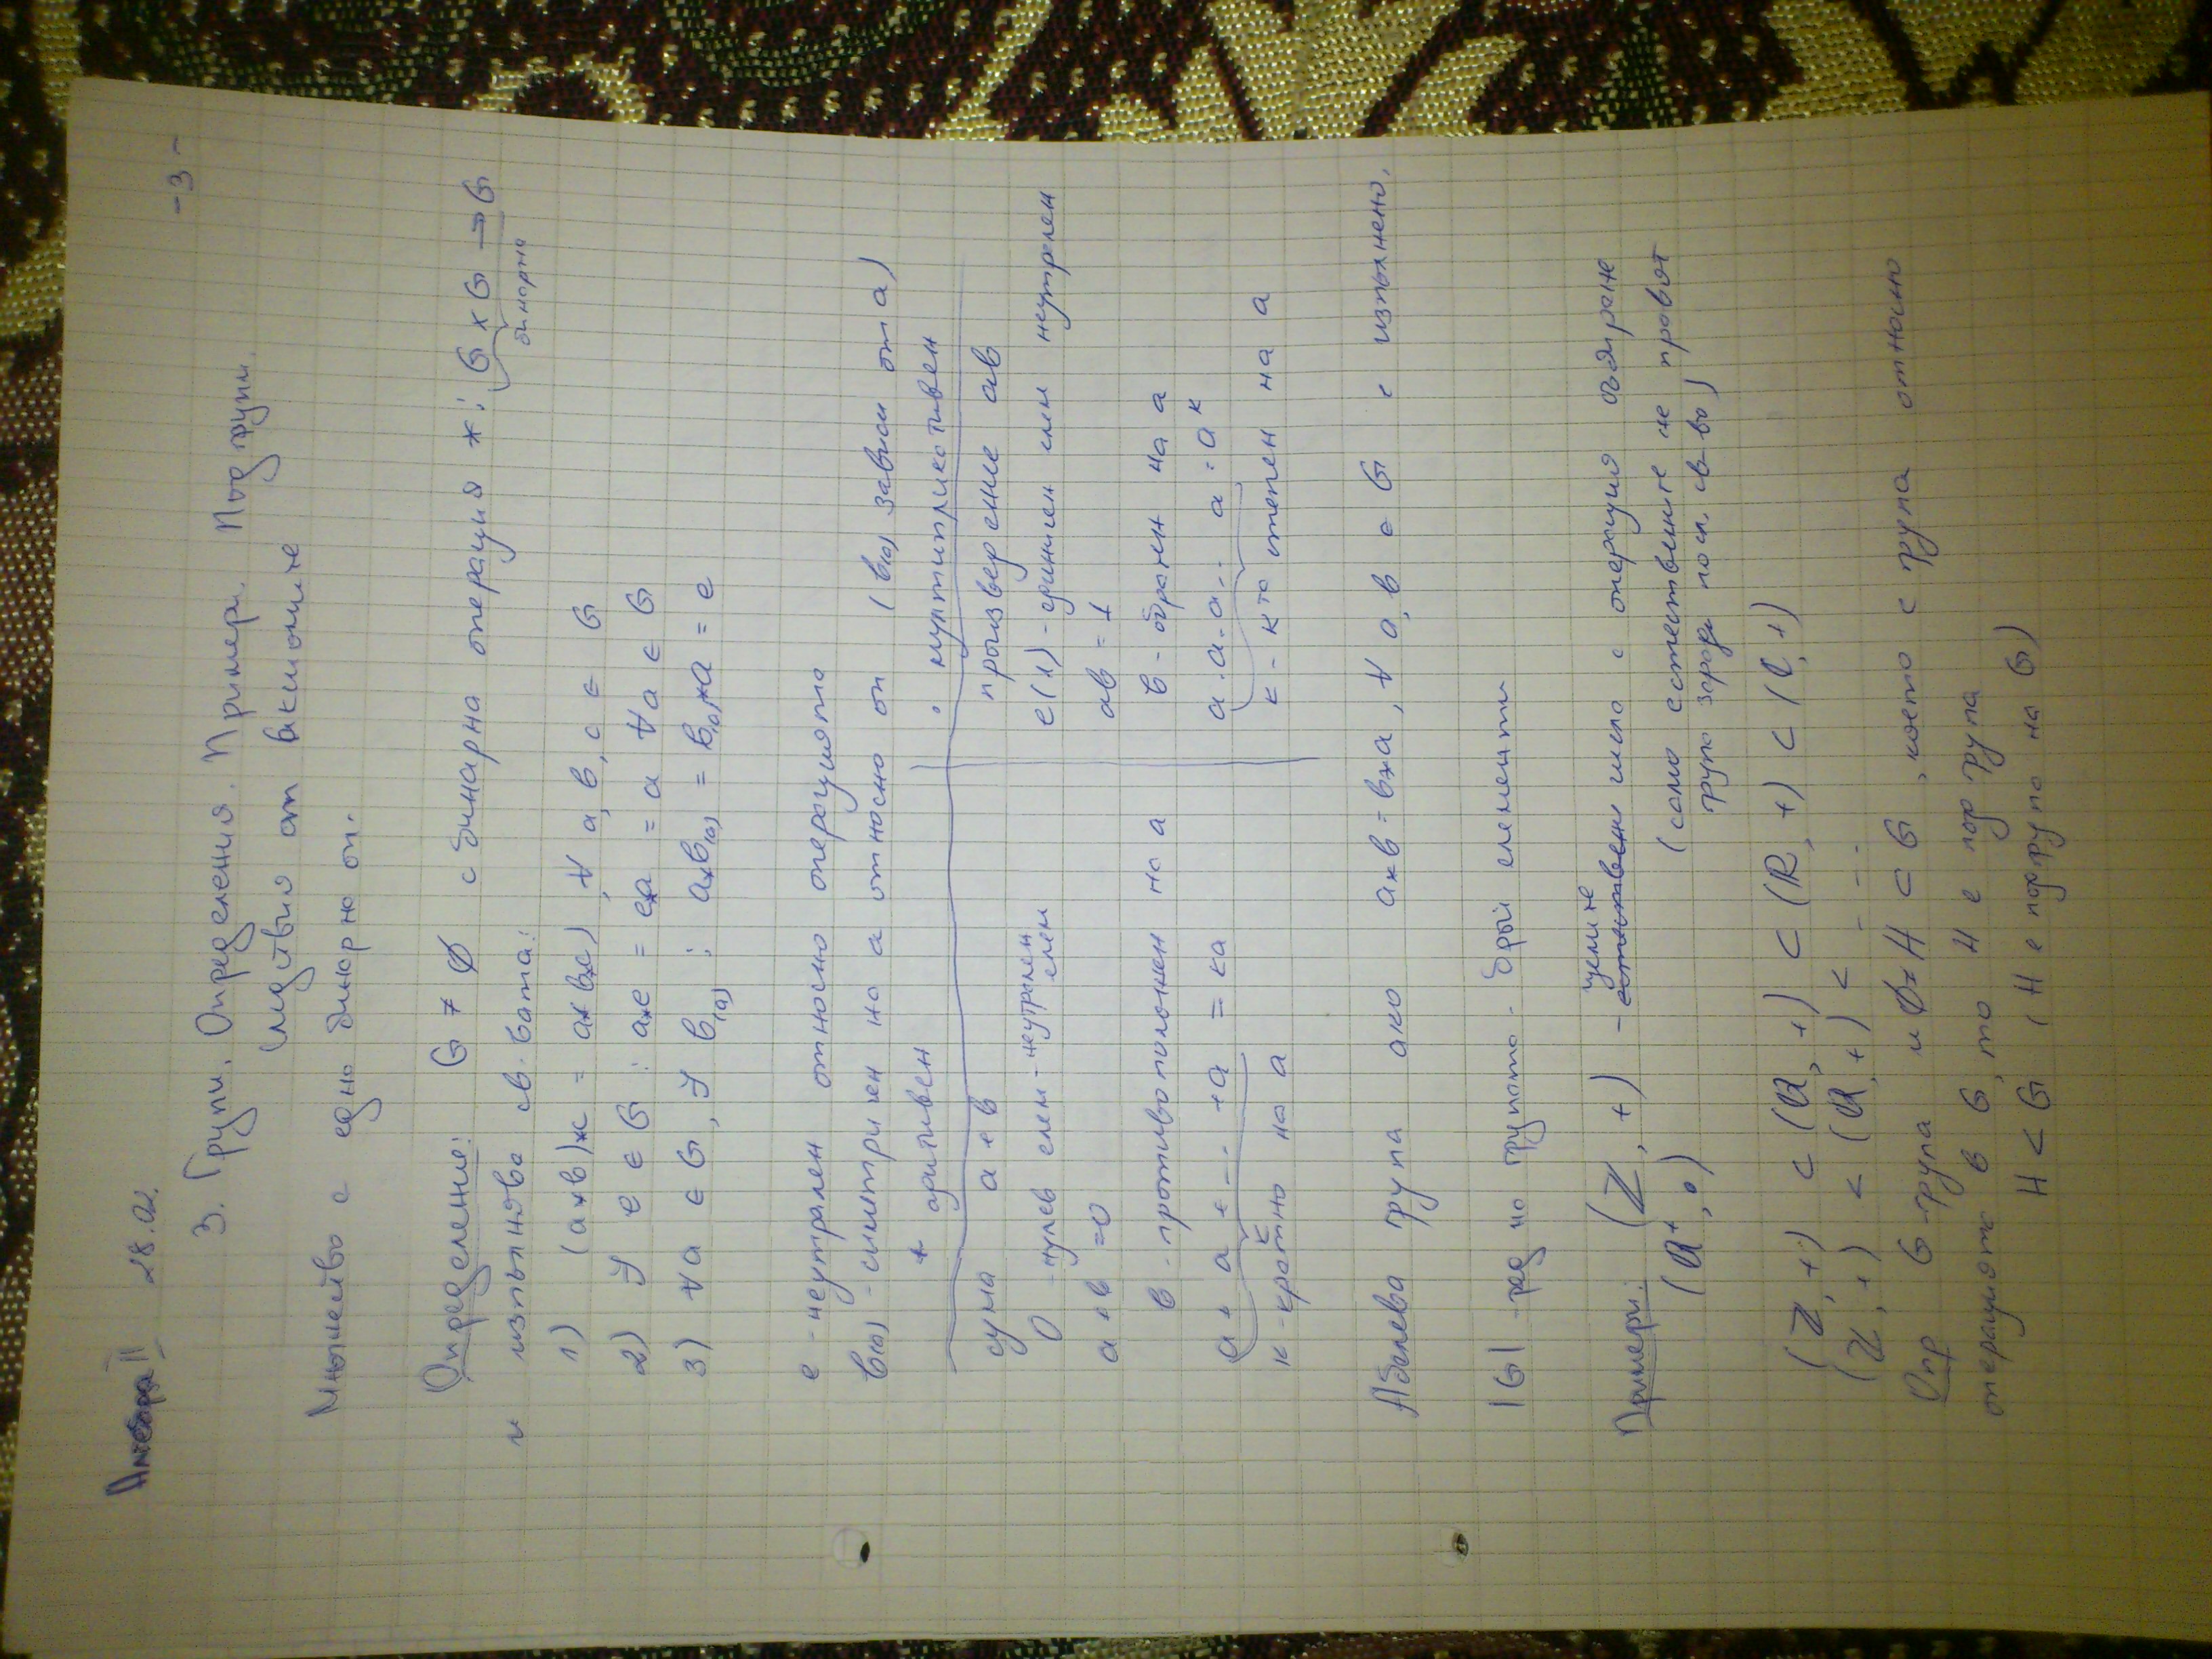 Алгебра II 28.02. -3-
3. Групи. Определения. Примери. Подгрупи.
Следствия от аксиомите
Множество с една бинарна оп.
Определение: G ≠ ∅ с бинарна операция *: G × G → G
бинарна
и изпълнява св-вата:
1) (a*в)*c = a*(в*c), ∀ a, в, c ∈ G
2) ∃ e ∈ G : a*e = e*a = a ∀ a ∈ G
3) ∀ a ∈ G, ∃ в(a) : a*в(a) = в(a)*a = e
e - неутрален относно операцията
в(a) - симетричен на a относно оп (в(a) зависи от a)
+ адитивен · мултипликативен
сума a + в произведение aв
0 - нулев елем - неутрален елем e(1) - единичен елем неутрален
a + в = 0 aв = 1
в - противоположен на a в - обратен на a
a + a + ... + a = кa a.a.a... a = a^к
к к - кратно на a к - кта степен на a
Абелева група ако a*в = в*a, ∀ a, в ∈ G е изпълнено.
|G| - ред на групата - брой елементи
Примери: (Z, +) - естествени целите числа с операция събиране
(само естествените не правят
група заради посл. св-во)
(Q⁺, ·)
(Z, +) ⊂ (Q, +) ⊂ (R, +) ⊂ (C, +)
(Z, +) < (Q, +) < - - -
Опр G - група и ∅ ≠ H ⊂ G, което е група относно
операцията в G, то H е подгрупа
H < G (H е подгрупа на G)